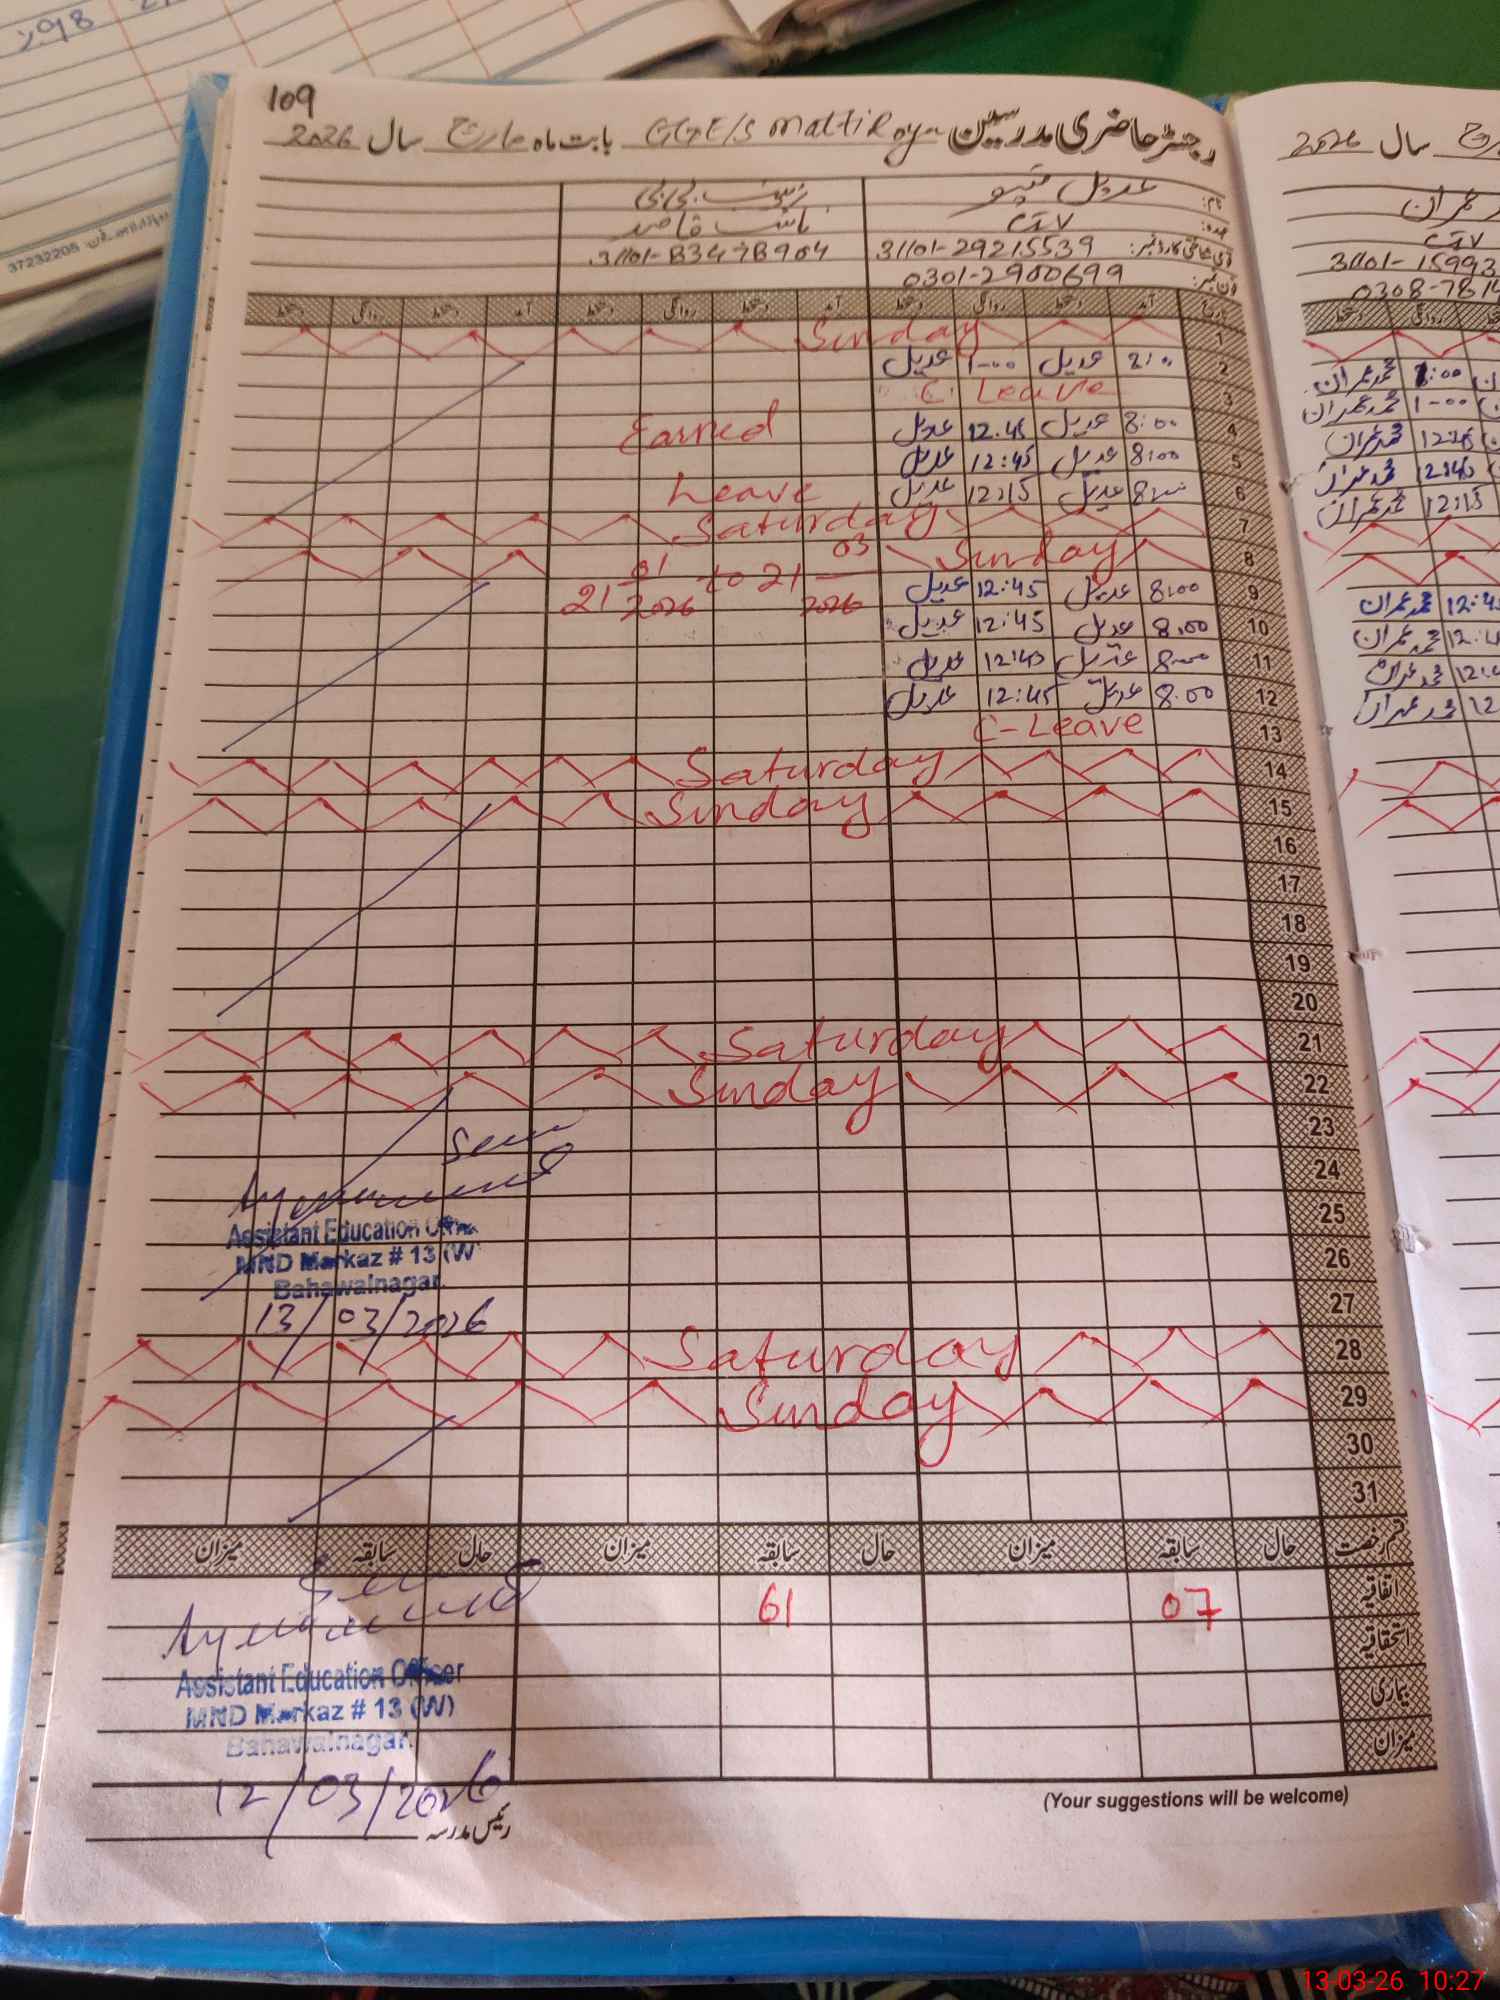 109
رجسٹر حاضری مدرسین GGE/S Matti Roya بابت ماہ مارچ سال 2026
نام: عدیل ٹیپو زینب بی بی
عہدہ: نائب قاصد
قومی شناختی کارڈ نمبر: 31101-29215539 31101-B347B904
فون نمبر: 0301-2900699
تاریخ آمد دستخط روانگی دستخط آمد دستخط روانگی دستخط آمد دستخط روانگی دستخط
1 Sunday
2 عدیل 1-00 عدیل
3 C. Leave
4 8:00 عدیل 12.45 عدیل Earned
5 8:00 عدیل 12:45 عدیل
6 عدیل 12:15 عدیل Leave
7 Saturday
8 Sunday
21/01/2026 to 21/03/2026
9 8:00 عدیل 12:45 عدیل
10 8.00 عدیل 12:45 عدیل
11 عدیل 12:45 عدیل
12 8.00 عدیل 12:45 عدیل
13 C-Leave
14 Saturday
15 Sunday
16
17
18
19
20
21 Saturday
22 Sunday
23
24
25
26
27
Assistant Education Officer
MND Markaz # 13 (W)
Bahawalnagar
13/03/2026
28 Saturday
29 Sunday
30
31
قسم رخصت حال سابقہ میزان حال سابقہ میزان حال سابقہ میزان
اتفاقیہ 07 61
استحقاقیہ
بیماری
میزان
Assistant Education Officer
MND Markaz # 13 (W)
Bahawalnagar
12/03/2026
(Your suggestions will be welcome)
رئیس مدرسہ
سال 2026
عمران
31101-15993
0308-7814
دستخط روانگی دستخط
محمد عمران 1:00
محمد عمران 1-00
محمد عمران 12:45
محمد عمران 12:45
محمد عمران 12:15
محمد عمران 12:45
محمد عمران
محمد عمران
محمد عمران
37232205
13-03-26 10:27